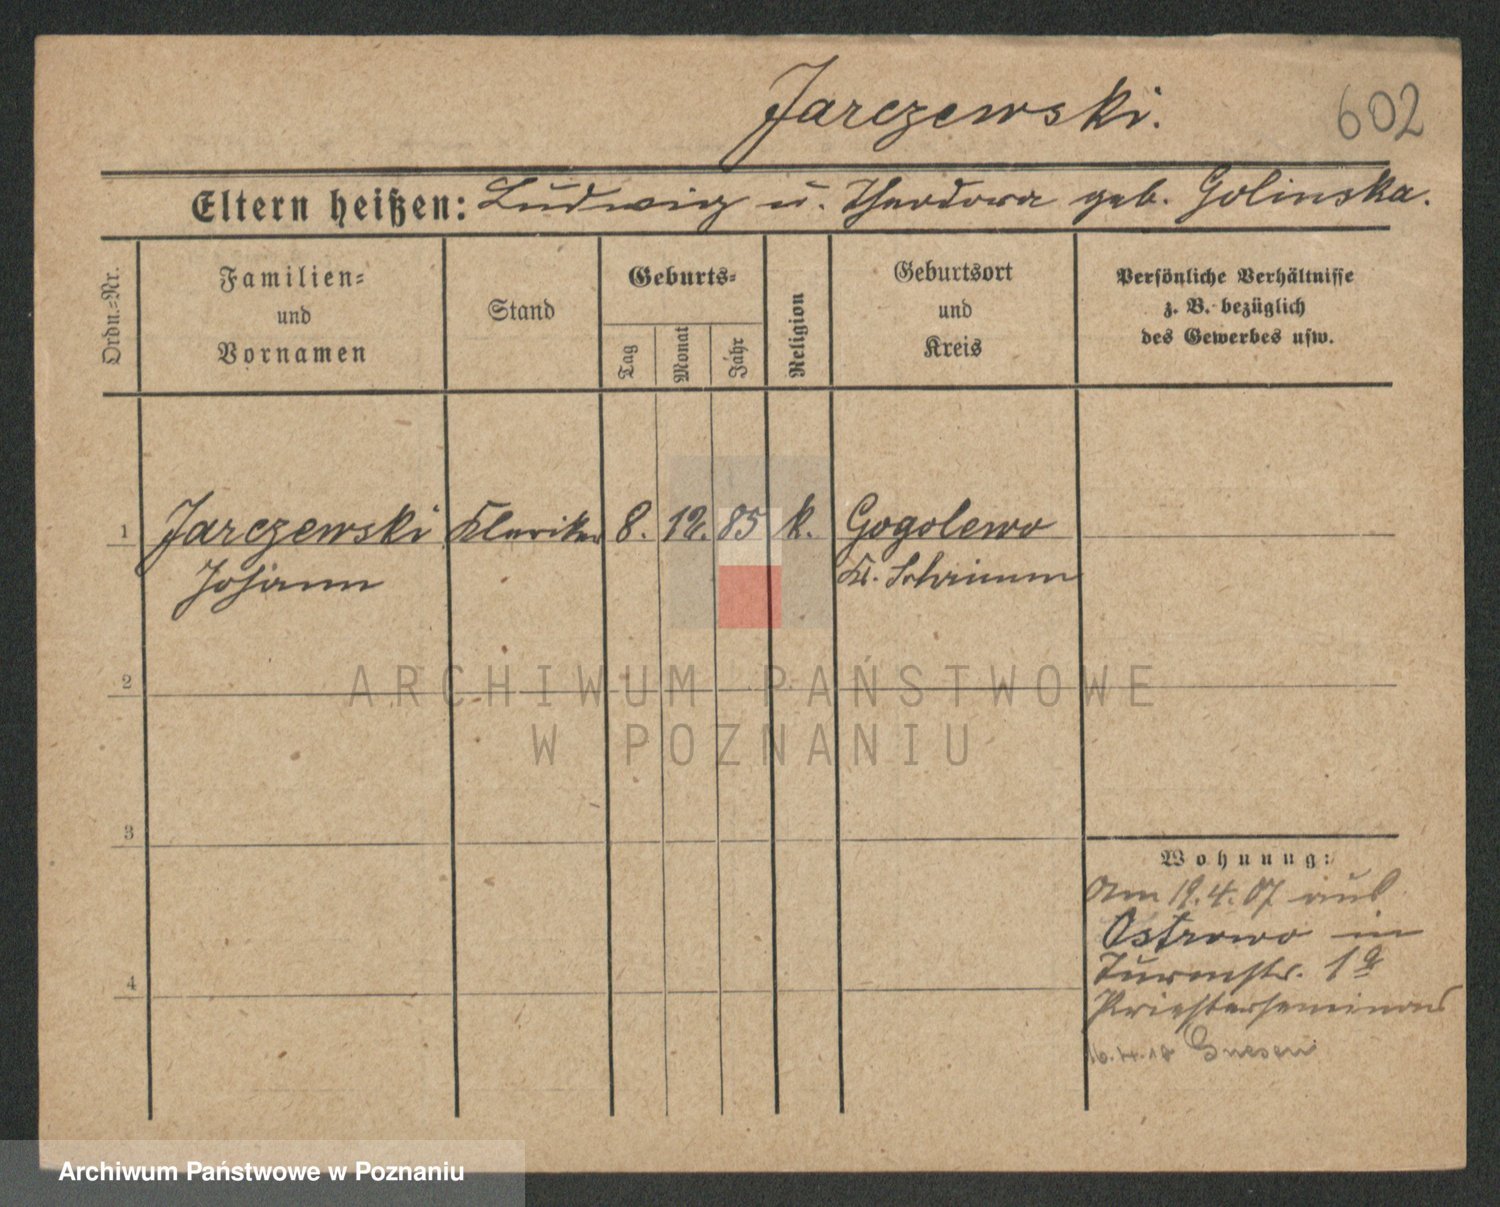 Jarczewski.
602
Eltern heißen: Ludwig u. Theodora geb. Golinska.
Ordn.=Nr.
Familien=
und
Vornamen
Stand
Geburts=
Tag
Monat
Jahr
Religion
Geburtsort
und
Kreis
Persönliche Verhältnisse
z. B. bezüglich
des Gewerbes usw.
1 Jarczewski Kleriker 8. 12. 85 k. Gogolewo
Johann Kr. Schrimm
2
ARCHIWUM PAŃSTWOWE
W POZNANIU
3
Wohnung:
Am 19.4.07 aus
Ostrowo in
4
Turmstr. 1a
Priesterseminar
Gnesen
Archiwum Państwowe w Poznaniu